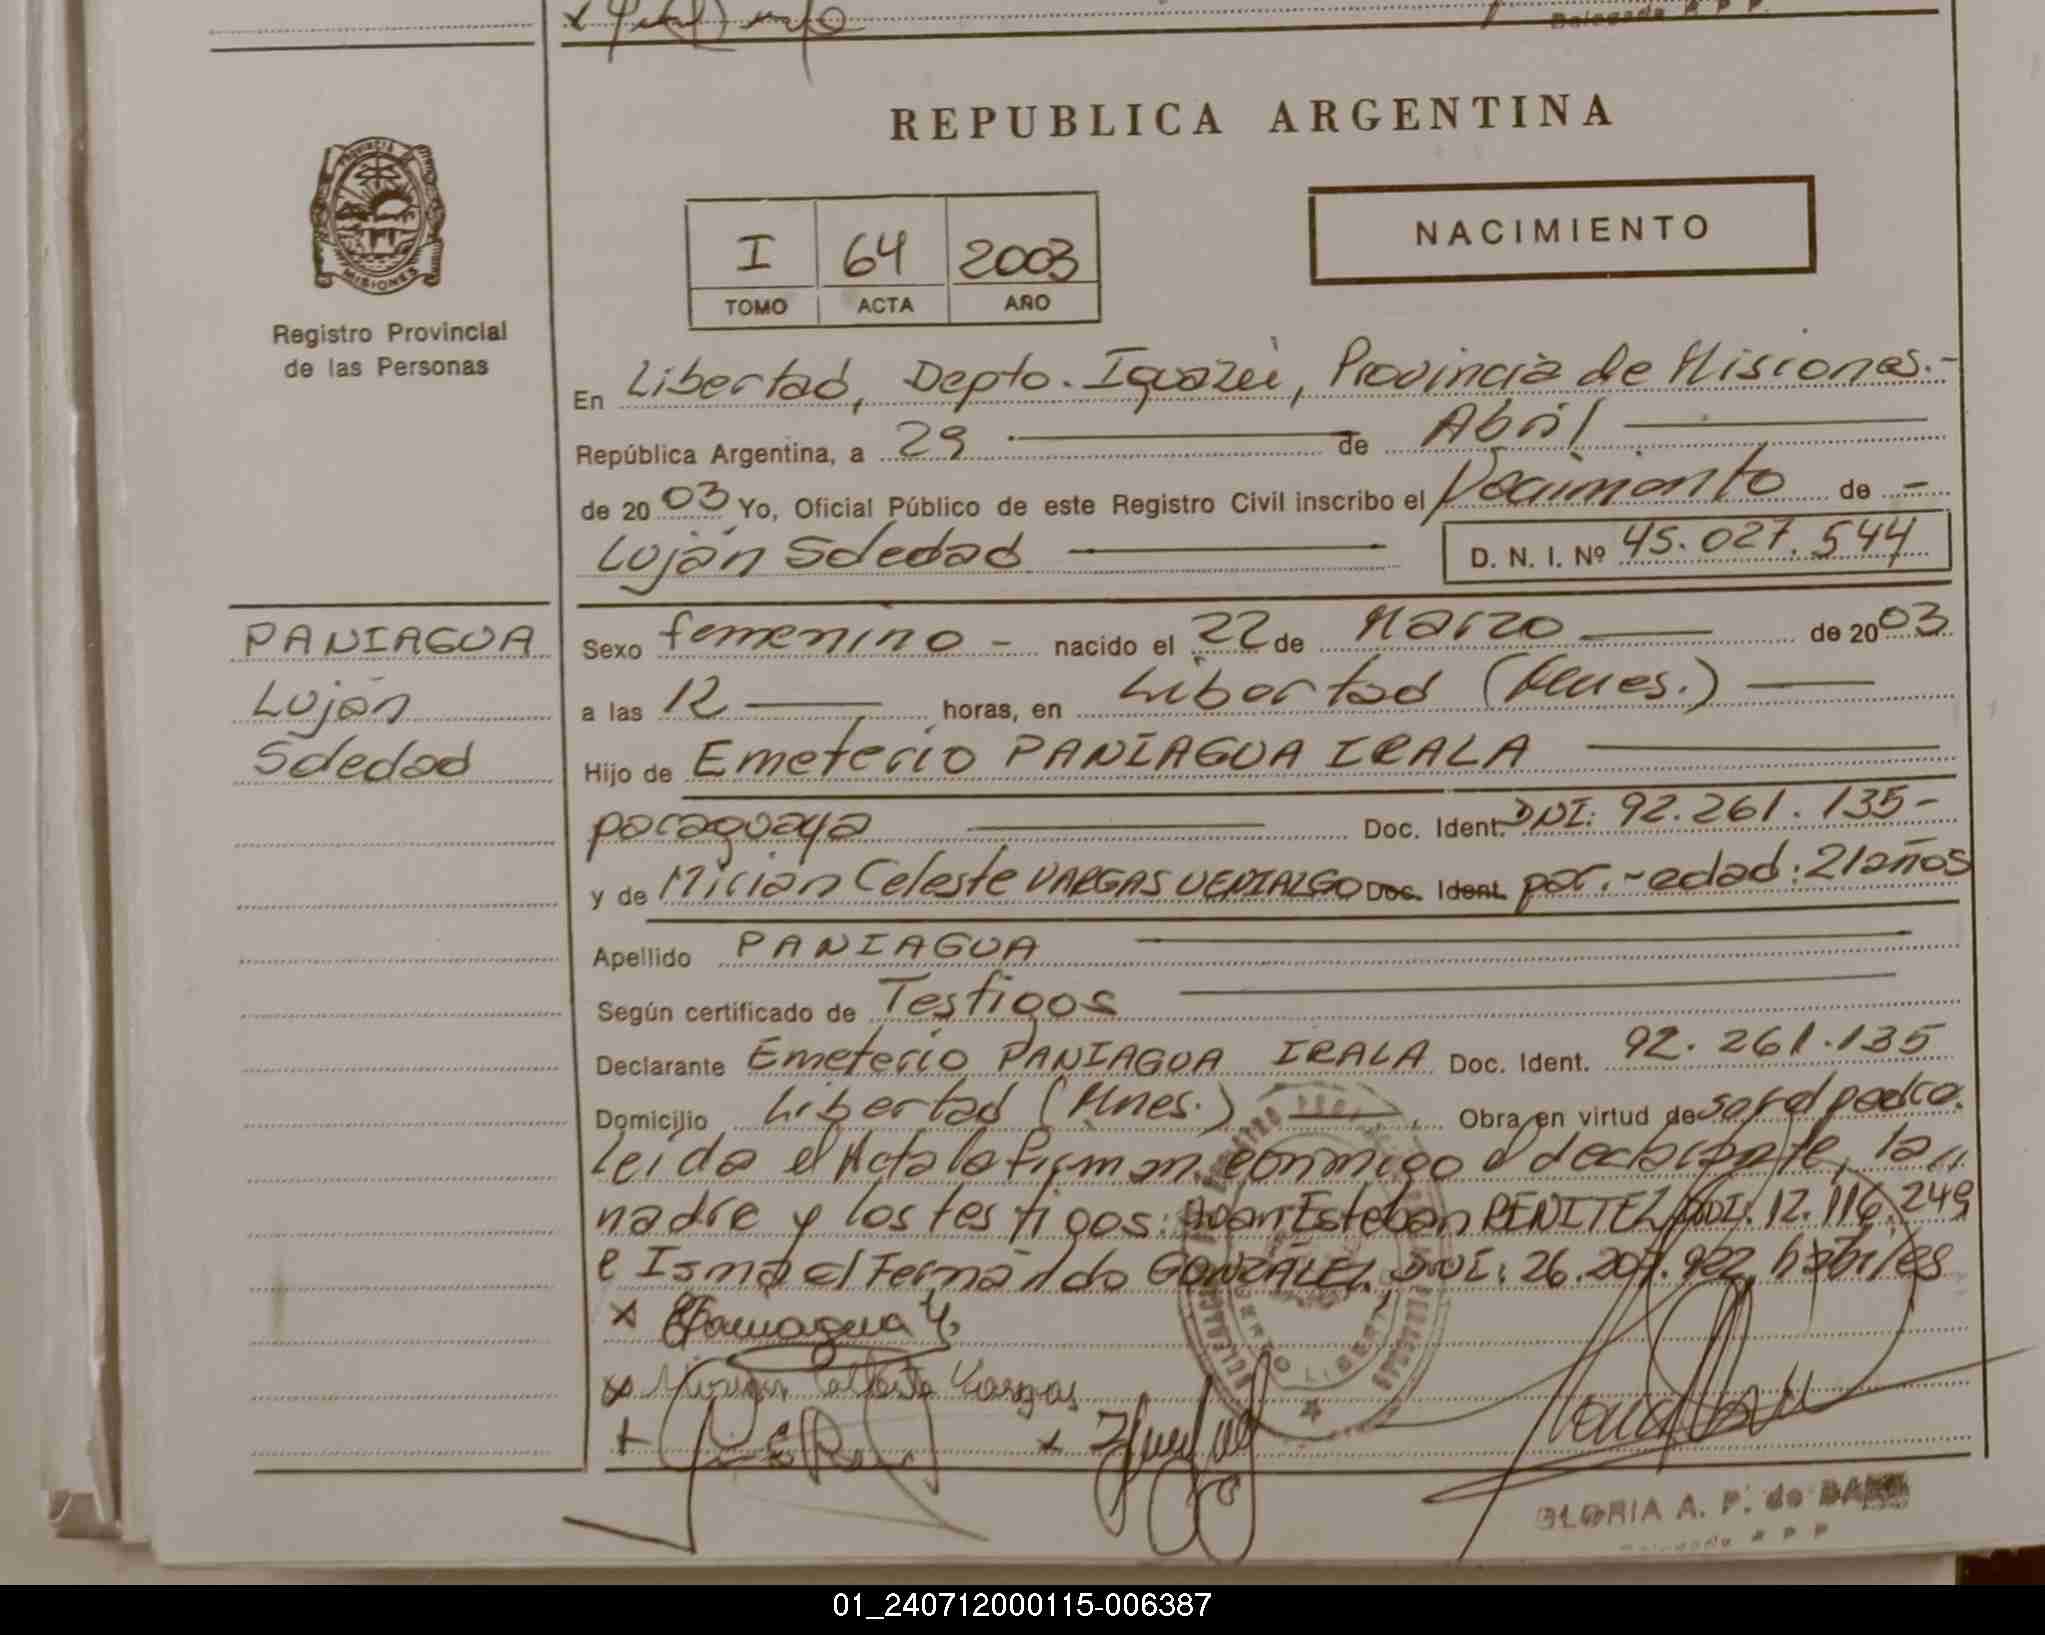 REPUBLICA ARGENTINA
PROVINCIA DE
MISIONES
Registro Provincial
de las Personas
I 64 2003
TOMO ACTA AÑO
NACIMIENTO
En Libertad, Depto. Iguazú, Provincia de Misiones.-
República Argentina, a 29 de Abril
de 2003 Yo, Oficial Público de este Registro Civil inscribo el Nacimiento de -
Luján Soledad D. N. I. Nº 45.027.544
PANIAGUA
Luján
Soledad
Sexo femenino - nacido el 22 de Marzo de 2003
a las 12 horas, en Libertad (Mnes.)
Hijo de Emeterio PANIAGUA IRALA
paraguaya Doc. Ident. DNI: 92.261.135-
y de Mirian Celeste VARGAS VENIALGO Doc. Ident. par.-edad: 21 años
Apellido PANIAGUA
Según certificado de Testigos
Declarante Emeterio PANIAGUA IRALA Doc. Ident. 92.261.135
Domicilio Libertad (Mnes.) Obra en virtud de ser el padre.
Leída el Acta la firman conmigo el declarante, la
madre y los testigos: Juan Esteban BENITEZ, DNI: 12.116.249
e Ismael Fernándo GONZALEZ, DNI: 26.207.922, hábiles
x Paniagua Y.
x Mirian Celeste Vargas
GLORIA A. P. de
01_240712000115-006387